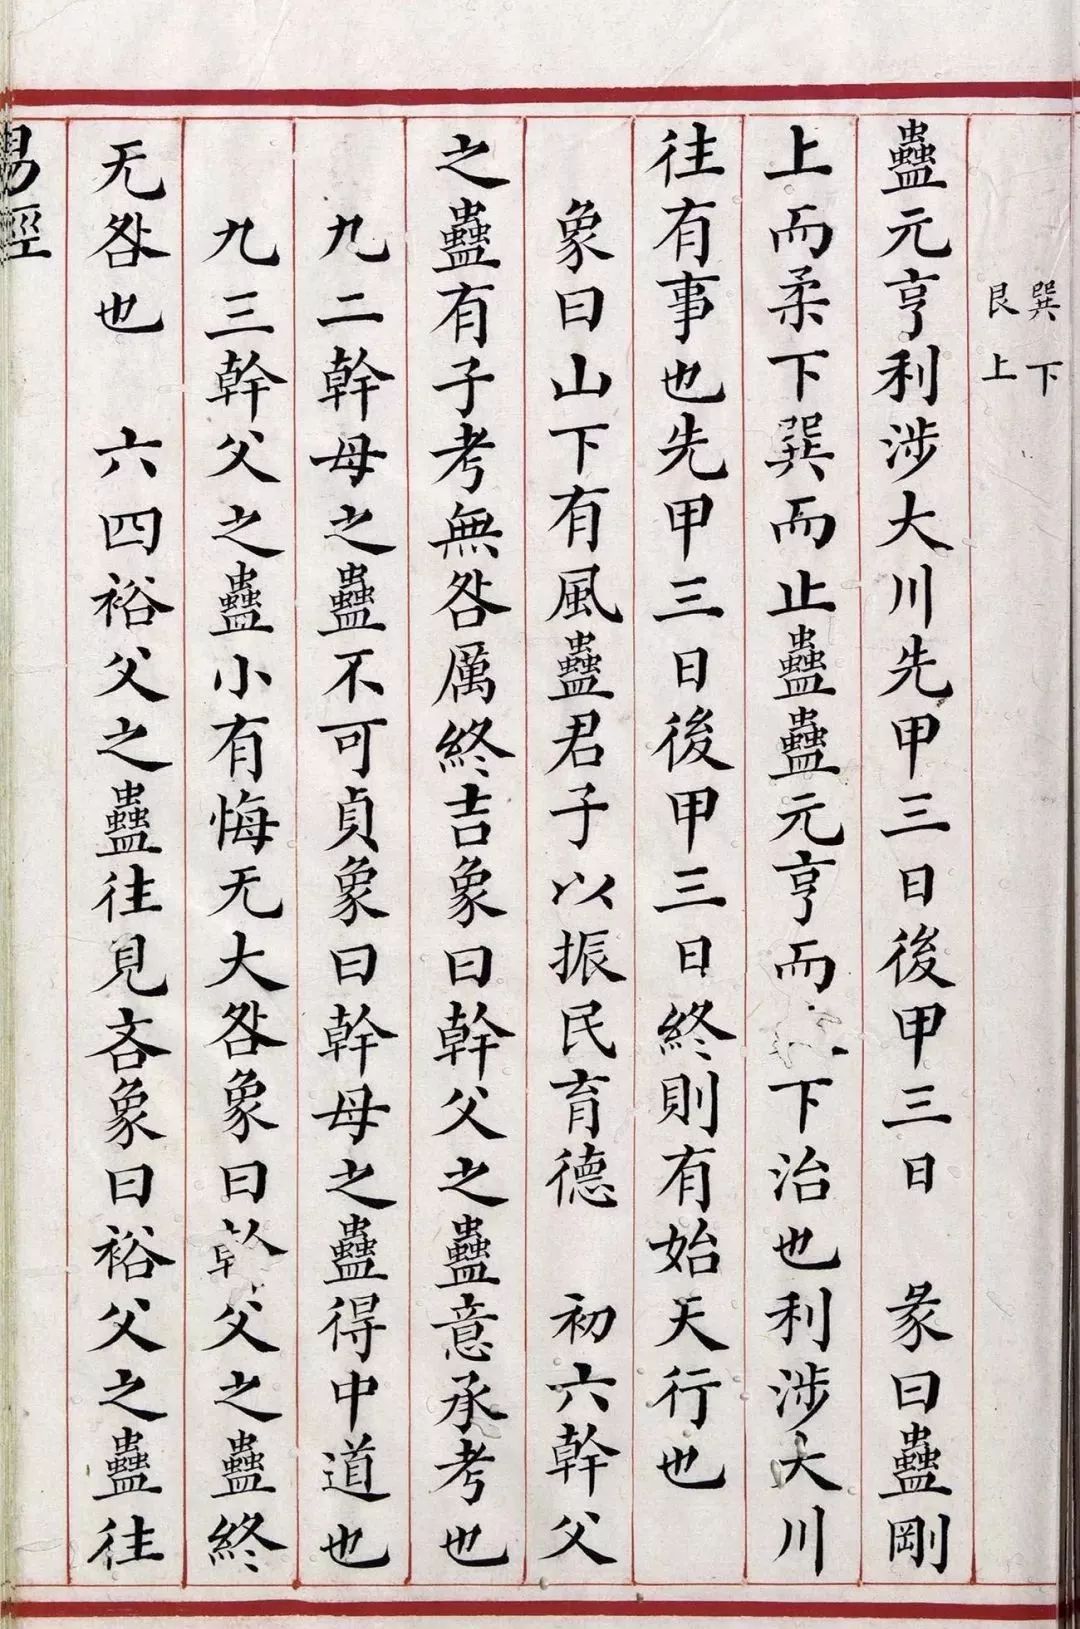 巽下
艮上
蠱元亨利涉大川先甲三日後甲三日　彖曰蠱剛
上而柔下巽而止蠱蠱元亨而下治也利涉大川
往有事也先甲三日後甲三日終則有始天行也
象曰山下有風蠱君子以振民育德　初六幹父
之蠱有子考無咎厲終吉象曰幹父之蠱意承考也
九二幹母之蠱不可貞象曰幹母之蠱得中道也
九三幹父之蠱小有悔无大咎象曰幹父之蠱終
无咎也　六四裕父之蠱往見吝象曰裕父之蠱往
易經